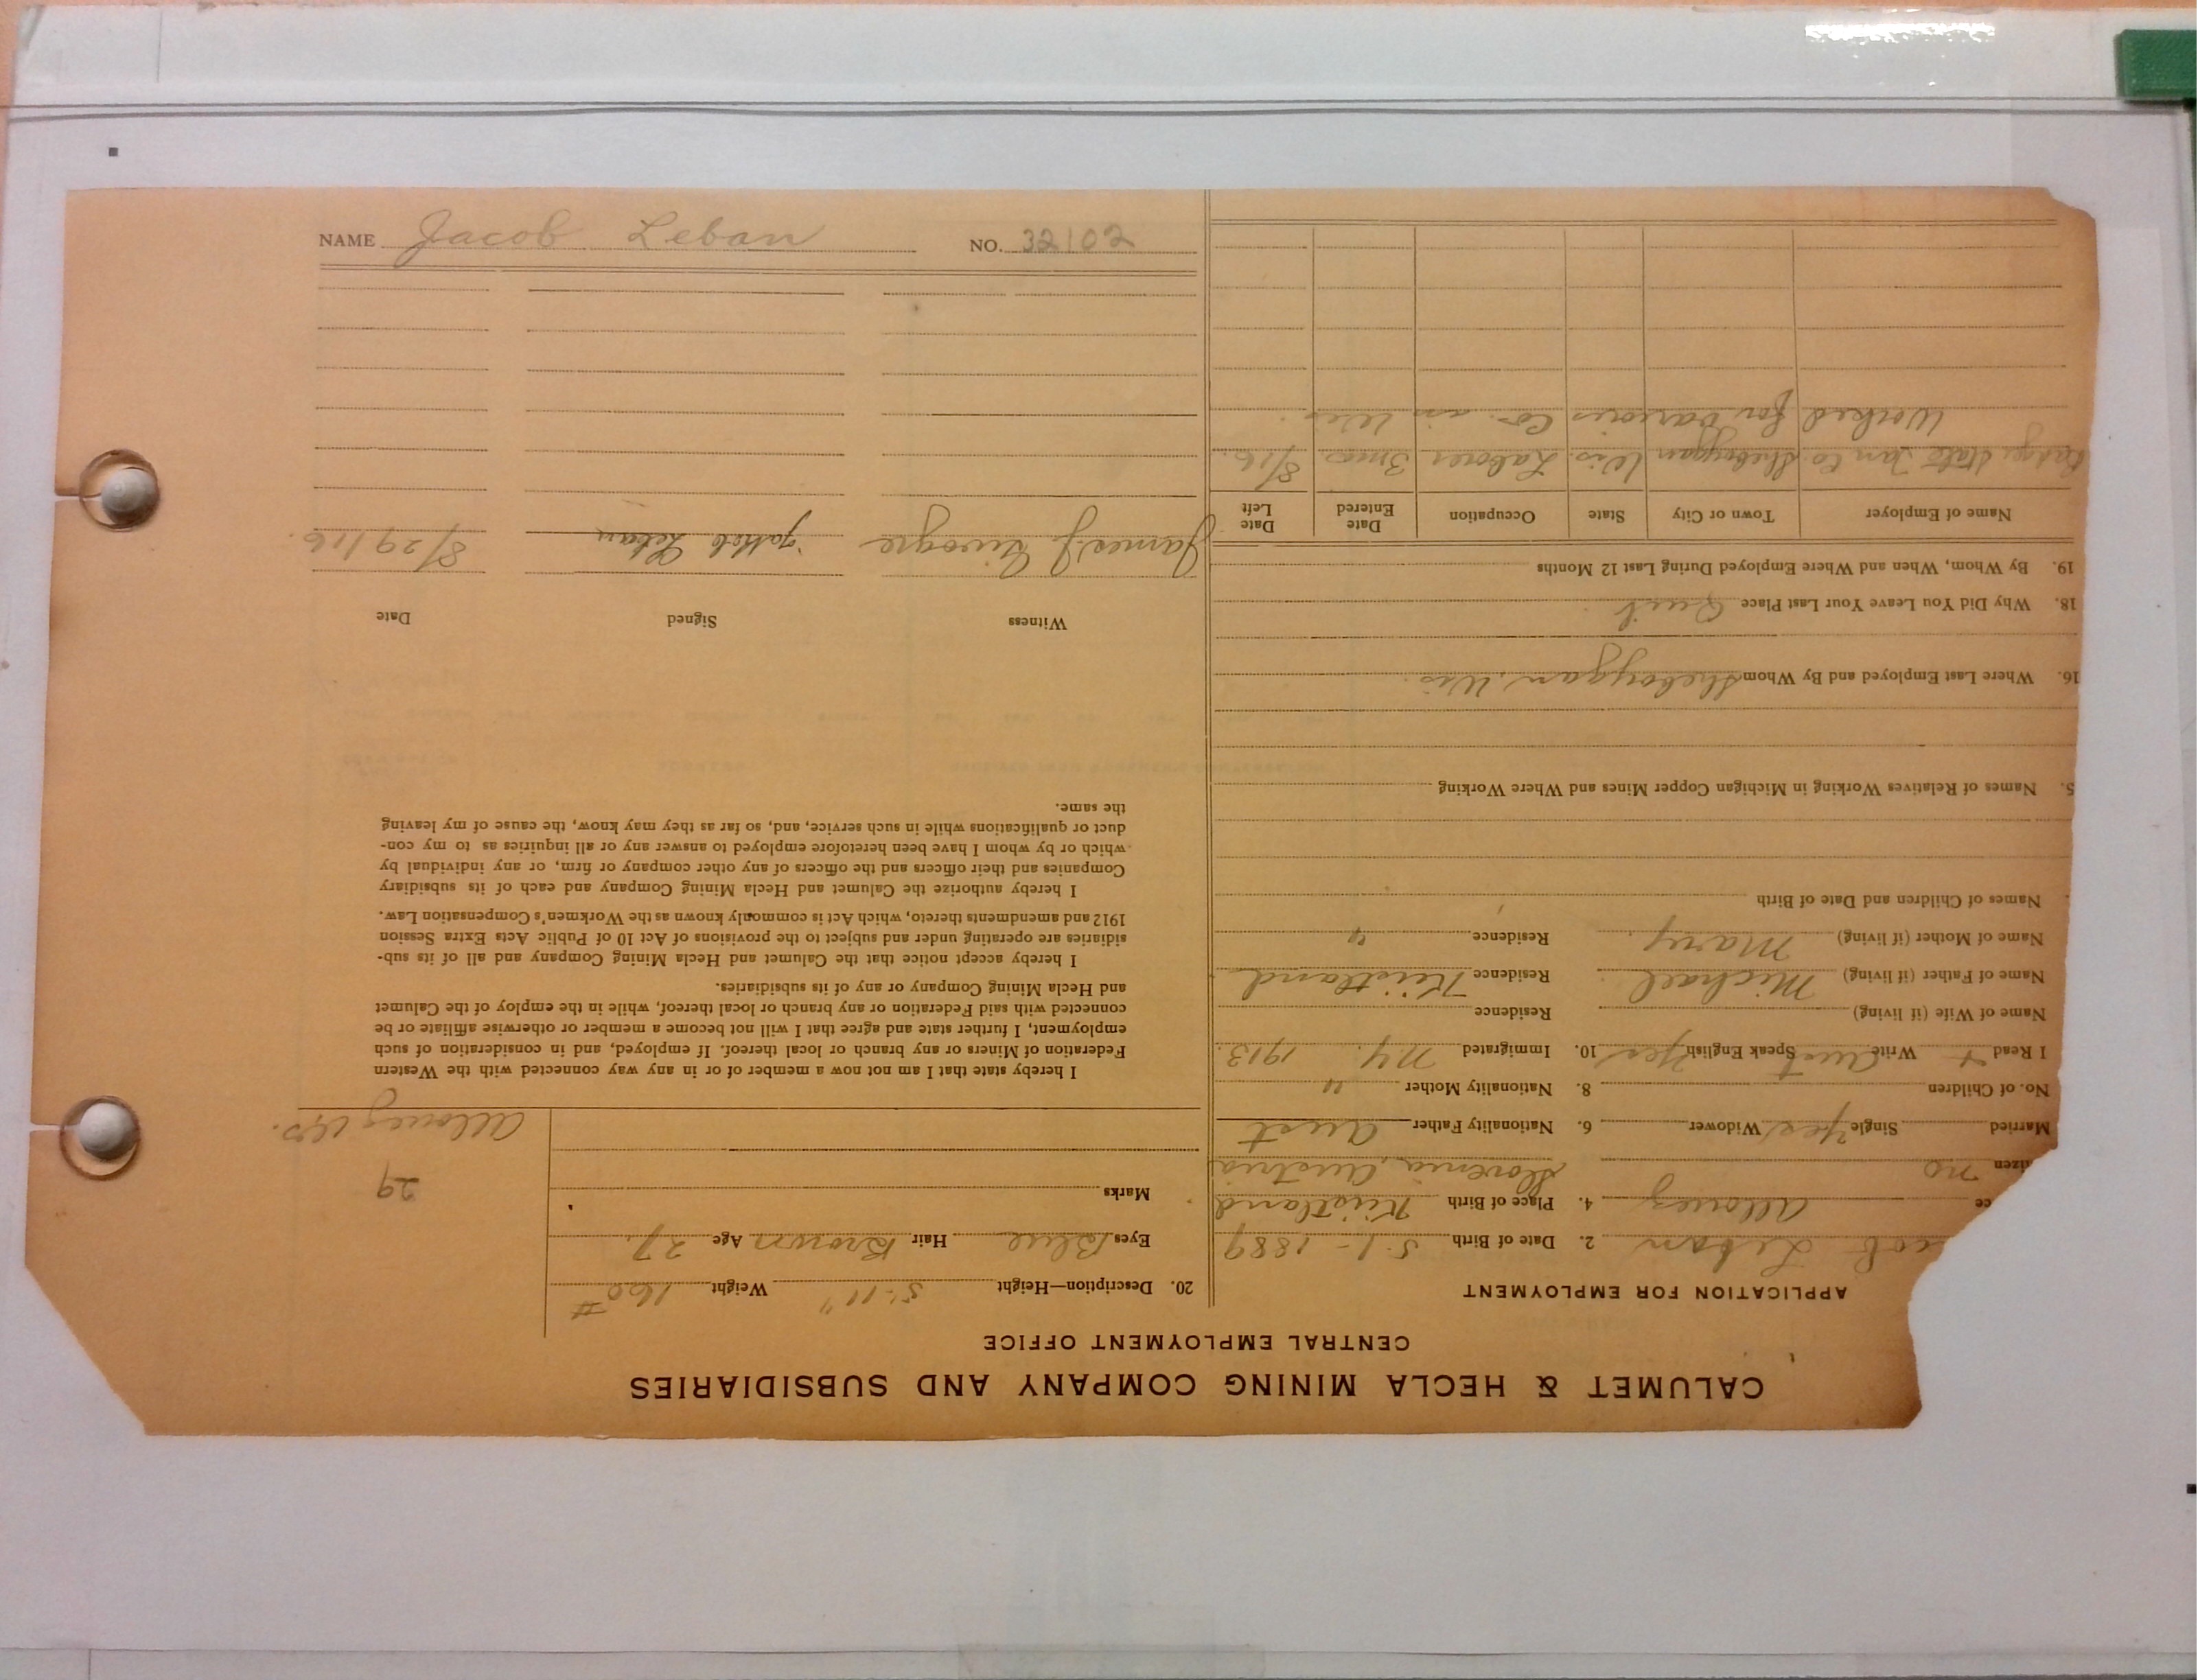 NAME Jacob Leban NO. 32102
CALUMET & HECLA MINING COMPANY AND SUBSIDIARIES
CENTRAL EMPLOYMENT OFFICE
APPLICATION FOR EMPLOYMENT
cob Leban 2. Date of Birth 5-1-1889
ce Allouez 4. Place of Birth
izen no Slovenia, Austria
Married Single Yes Widower 6. Nationality Father Aust
No. of Children 8. Nationality Mother "
I Read + Write Aust Speak English Yes 10. Immigrated N.Y. 1913.
Name of Wife (if living) Residence
Name of Father (if living) Michael Residence
Name of Mother (if living) Mary Residence "
Names of Children and Date of Birth
5. Names of Relatives Working in Michigan Copper Mines and Where Working
16. Where Last Employed and By Whom Sheboygan, Wis.
18. Why Did You Leave Your Last Place Quit
19. By Whom, When and Where Employed During Last 12 Months
Name of Employer Town or City State Occupation Date Entered Date Left
State Tan Co. Sheboygan Wis. Laborer 3 mos. 8/16.
Worked for various Co. in Wis.
20. Description—Height 5'-11" Weight 160#
Eyes Blue Hair Brown Age 27.
Marks
29
Allouez
I hereby state that I am not now a member of or in any way connected with the Western
Federation of Miners or any branch or local thereof. If employed, and in consideration of such
employment, I further state and agree that I will not become a member or otherwise affiliate or be
connected with said Federation or any branch or local thereof, while in the employ of the Calumet
and Hecla Mining Company or any of its subsidiaries.
I hereby accept notice that the Calumet and Hecla Mining Company and all of its sub-
sidiaries are operating under and subject to the provisions of Act 10 of Public Acts Extra Session
1912 and amendments thereto, which Act is commonly known as the Workmen's Compensation Law.
I hereby authorize the Calumet and Hecla Mining Company and each of its subsidiary
Companies and their officers and the officers of any other company or firm, or any individual by
which or by whom I have been heretofore employed to answer any or all inquiries as to my con-
duct or qualifications while in such service, and, so far as they may know, the cause of my leaving
the same.
Witness Signed Date
James J. Jakob Leban 8/29/16.